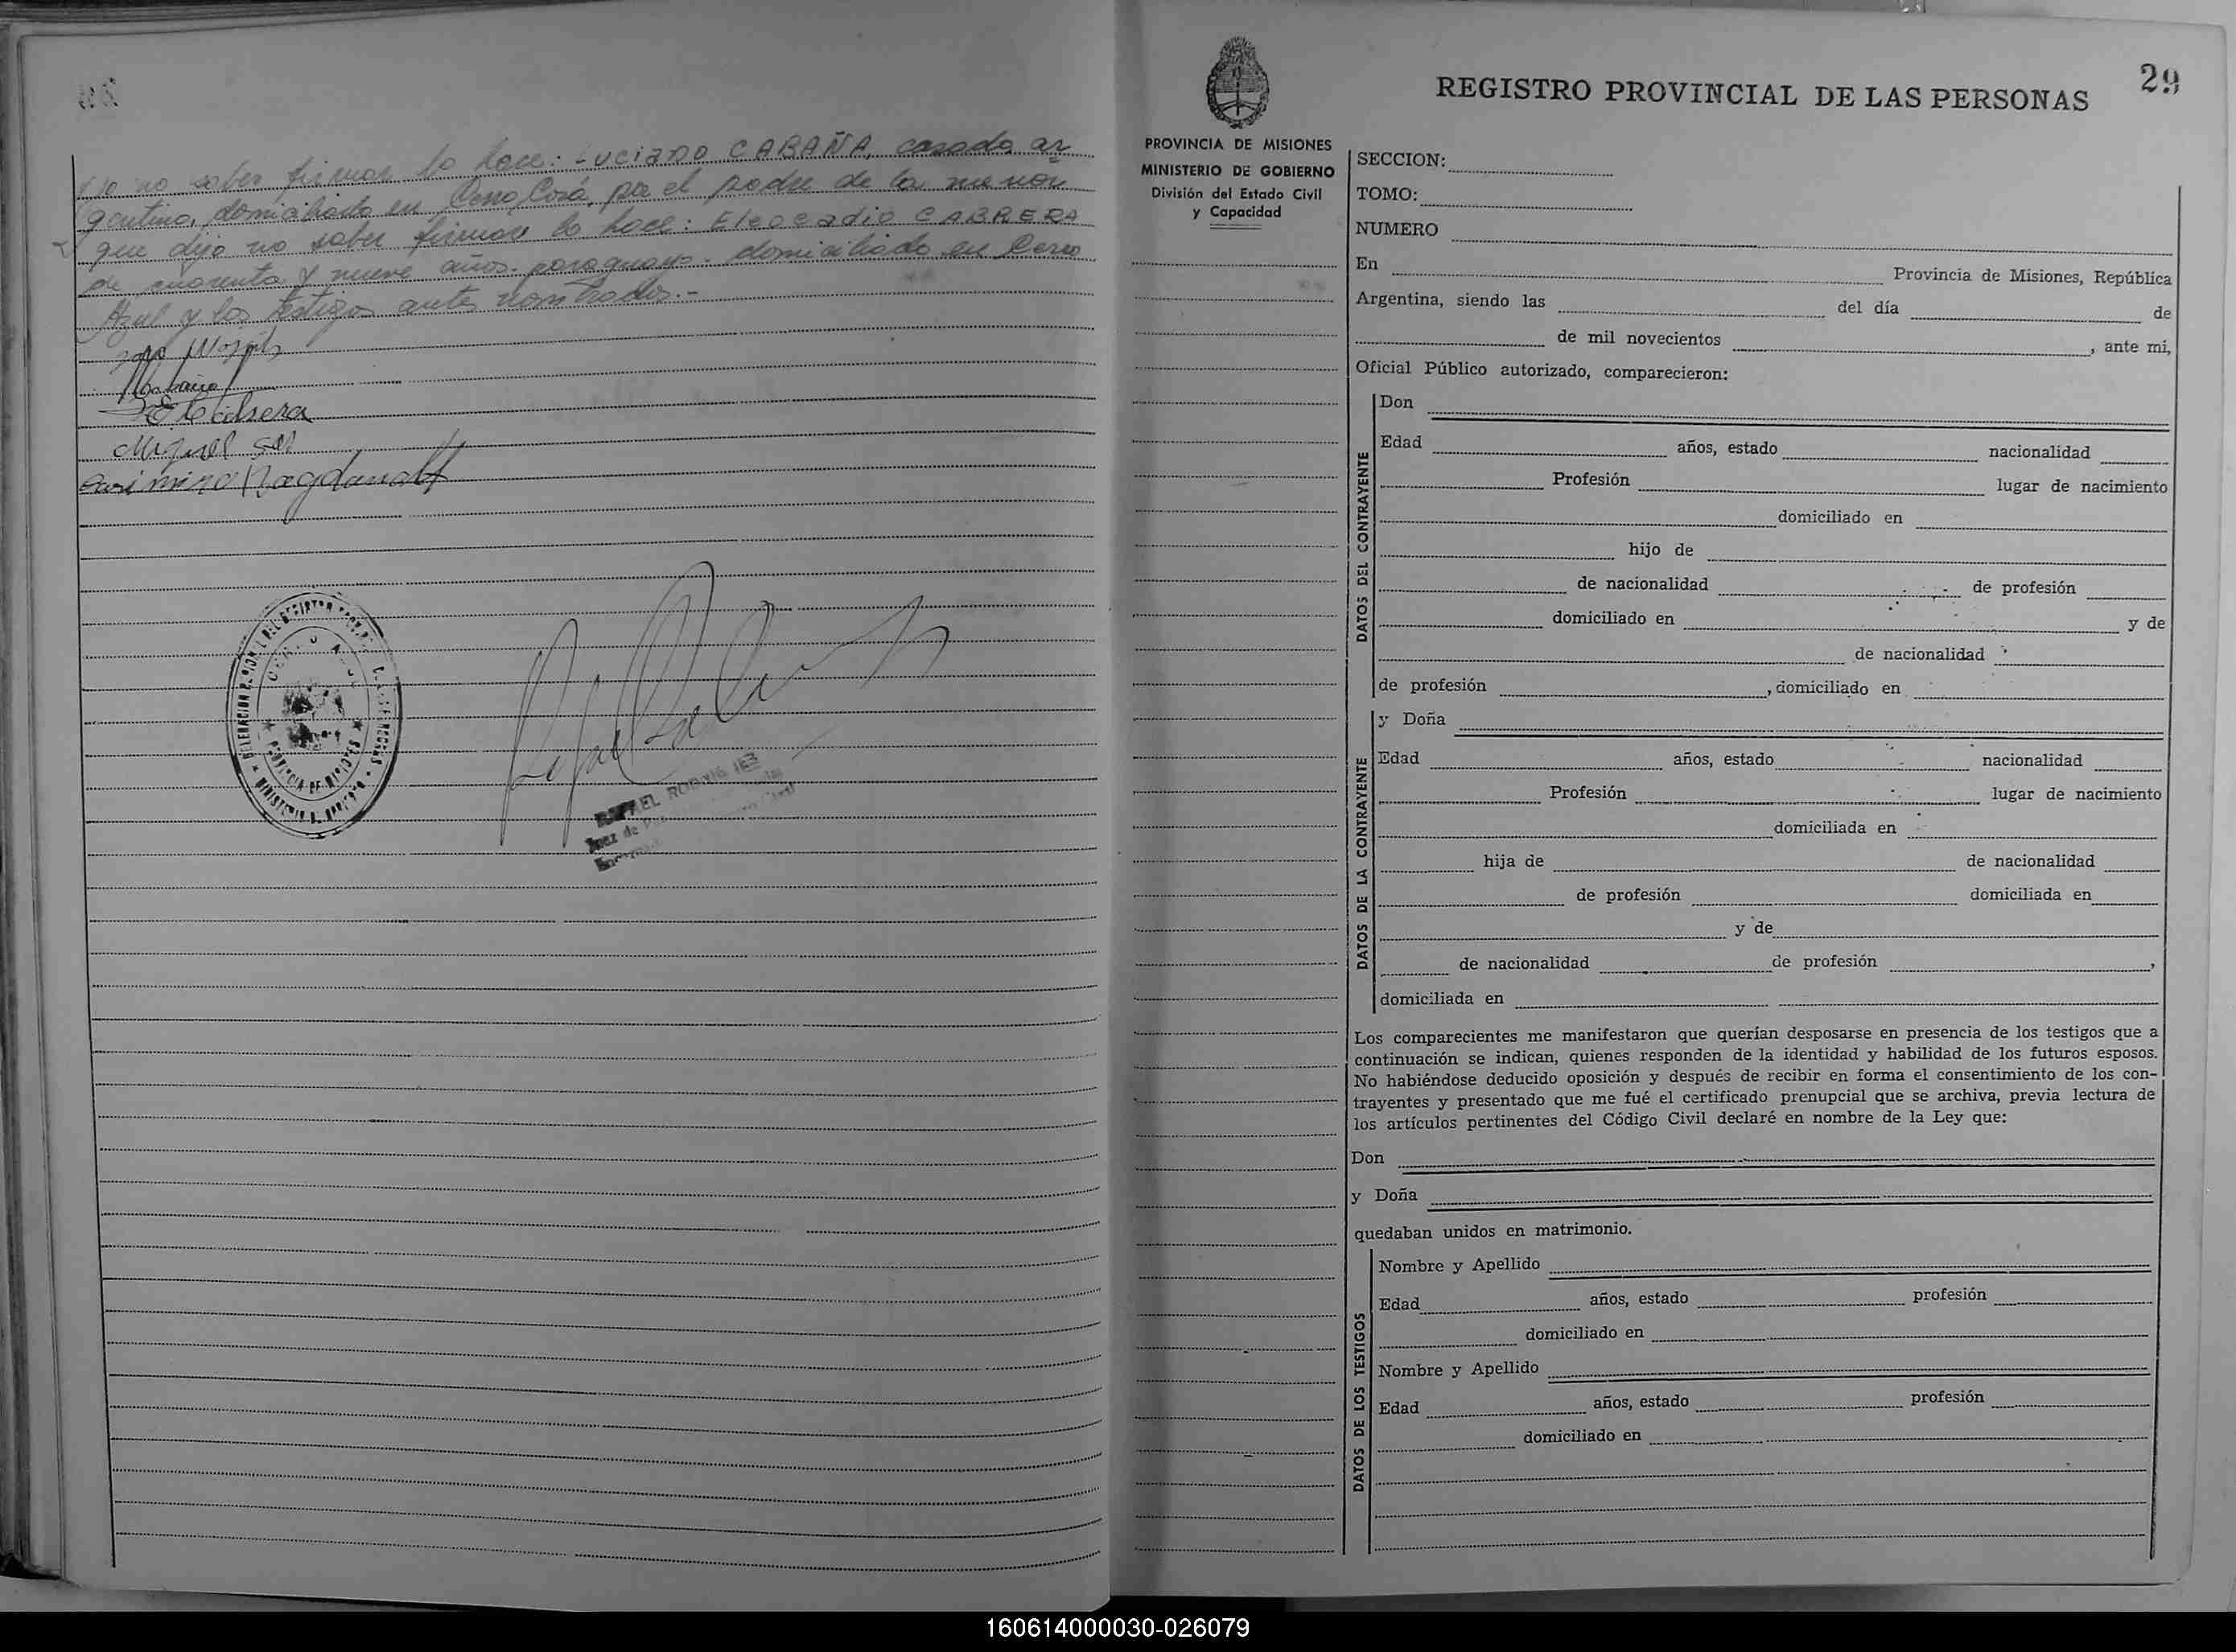 dijo no saber firmar lo hace: Luciano CABAÑA, casado, ar
gentino, domiciliado en Cerro Corá, por el padre de la menor
que dijo no saber firmar lo hace: Eleocadio CABRERA
de cuarenta y nueve años. paraguayo. domiciliado en Cerro
Azul y los testigos antes nombrados.-
E Cabrera
Miguel
PROVINCIA DE MISIONES
MINISTERIO DE GOBIERNO
División del Estado Civil
y Capacidad
REGISTRO PROVINCIAL DE LAS PERSONAS
29
SECCION:
TOMO:
NUMERO
En Provincia de Misiones, República
Argentina, siendo las del día de
de mil novecientos , ante mi,
Oficial Público autorizado, comparecieron:
DATOS DEL CONTRAYENTE
Don
Edad años, estado nacionalidad
Profesión lugar de nacimiento
domiciliado en
hijo de
de nacionalidad de profesión
domiciliado en y de
de nacionalidad
de profesión , domiciliado en
DATOS DE LA CONTRAYENTE
y Doña
Edad años, estado nacionalidad
Profesión lugar de nacimiento
domiciliada en
hija de de nacionalidad
de profesión domiciliada en
y de
de nacionalidad de profesión ,
domiciliada en
Los comparecientes me manifestaron que querían desposarse en presencia de los testigos que a
continuación se indican, quienes responden de la identidad y habilidad de los futuros esposos.
No habiéndose deducido oposición y después de recibir en forma el consentimiento de los con-
trayentes y presentado que me fué el certificado prenupcial que se archiva, previa lectura de
los artículos pertinentes del Código Civil declaré en nombre de la Ley que:
Don
y Doña
quedaban unidos en matrimonio.
DATOS DE LOS TESTIGOS
Nombre y Apellido
Edad años, estado profesión
domiciliado en
Nombre y Apellido
Edad años, estado profesión
domiciliado en
160614000030-026079